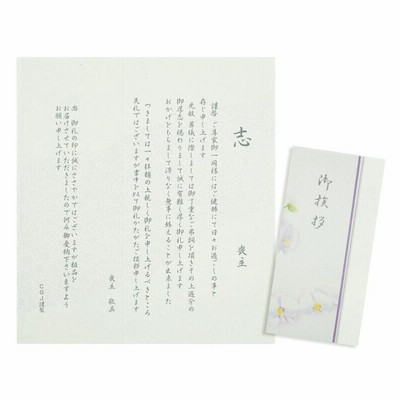 志
喪主
謹啓 ご尊家御一同様にはご健勝にて日々お過ごしの事と
存じ申し上げます
先般 葬儀に際しましては御丁重なご弔詞を頂きその上過分の
御厚志を賜わりまして誠に有難く厚く御礼申し上げます
おかげをもちまして滞りなく無事に終えることが出来ました
つきましては一々拝趨の上親しく御礼を申し上げるべきところ
失礼ではございますが書中を以て御礼かたがたご挨拶申し上げます
喪主 敬具
尚 御礼の印に誠にささやかではございますが粗品を
お届けさせていただきましたので何卒御受納下さいますよう
お願い申し上げます
CGJ謹製
御挨拶